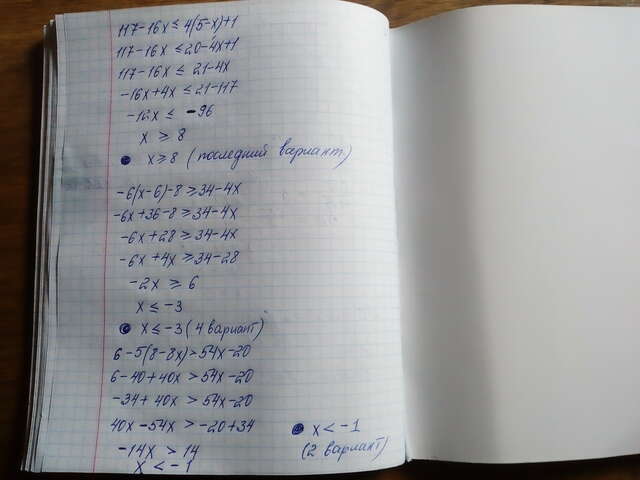 117-16x ≤ 4(5-x)+1
117-16x ≤ 20-4x+1
117-16x ≤ 21-4x
-16x+4x ≤ 21-117
-12x ≤ -96
x ≥ 8
x ≥ 8 (последний вариант)
-6(x-6)-8 ≥ 34-4x
-6x+36-8 ≥ 34-4x
-6x+28 ≥ 34-4x
-6x+4x ≥ 34-28
-2x ≥ 6
x ≤ -3
x ≤ -3 (4 вариант)
6-5(8-8x) > 54x-20
6-40+40x > 54x-20
-34+40x > 54x-20
40x-54x > -20+34
-14x > 14
x < -1
x < -1
(2 вариант)